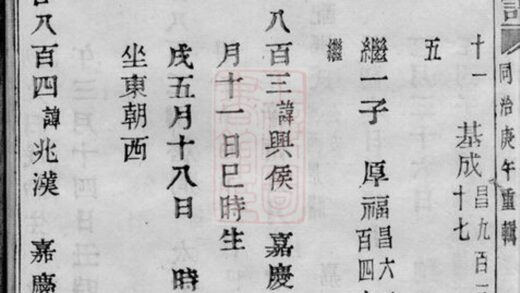 同治庚午重輯
十一 基成昌九百一十七
五
繼一子 厚福昌六百四
繼
八百三諱興侯 嘉慶
月十一日巳時生
戌五月十八日 時
坐東朝西
八百四諱兆漢 嘉慶